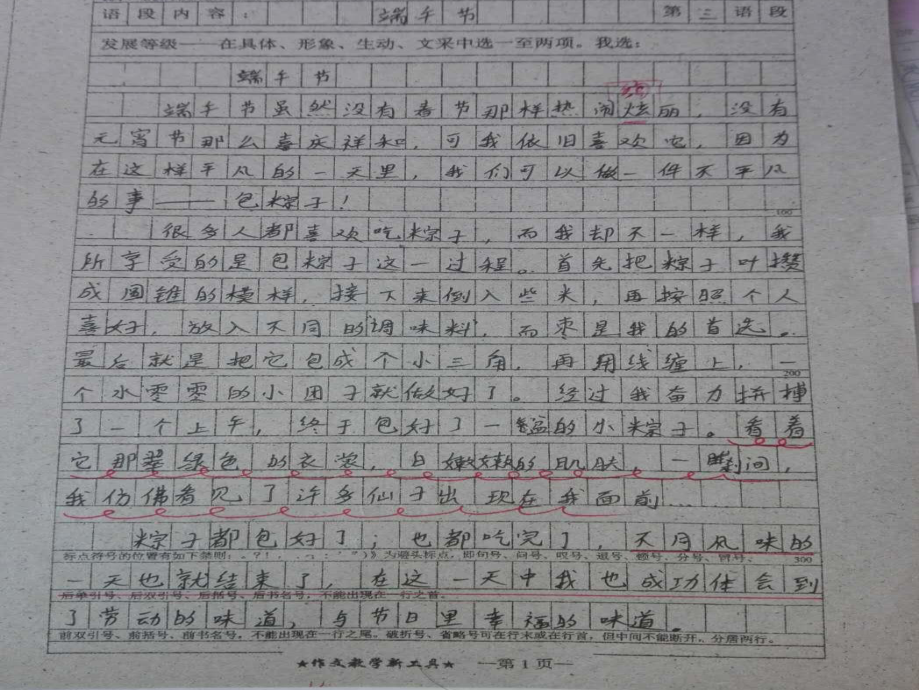 语段内容： 端午节 第三语段
发展等级——在具体、形象、生动、文采中选一至两项。我选：
端午节
绚
端午节虽然没有春节那样热闹炫丽，没有
元宵节那么喜庆祥和，可我依旧喜欢它，因为
在这样平凡的一天里，我们可以做一件不平凡
的事——包粽子！
100
很多人都喜欢吃粽子，而我却不一样，我
所享受的是包粽子这一过程。首先把粽子叶攒
成圆锥的模样，接下来倒入些米，再按照个人
喜好，放入不同的调味料，而枣是我的首选。
最后就是把它包成个小三角，再用线缠上，一
200
个水零零的小团子就做好了。经过我奋力拼搏
了一个上午，终于包好了一盆的小粽子。看着
它那翠绿色的衣裳，白嫩嫩的肌肤，一瞬间，
我仿佛看见了许多仙子出现在我面前…
粽子都包好了；也都吃完了，不同风味的
标点符号的位置有如下禁则：
300
一天也就结束了，在这一天中我也成功体会到
后单引号、后双引号、后括号、后书名号，不能出现在一行之首。
了劳动的味道，与节日里幸福的味道。
前双引号、前括号、前书名号，不能出现在一行之尾。破折号、省略号可在行末或在行首，但中间不能断开，分居两行。
★作文教学新工具★ —第1页—